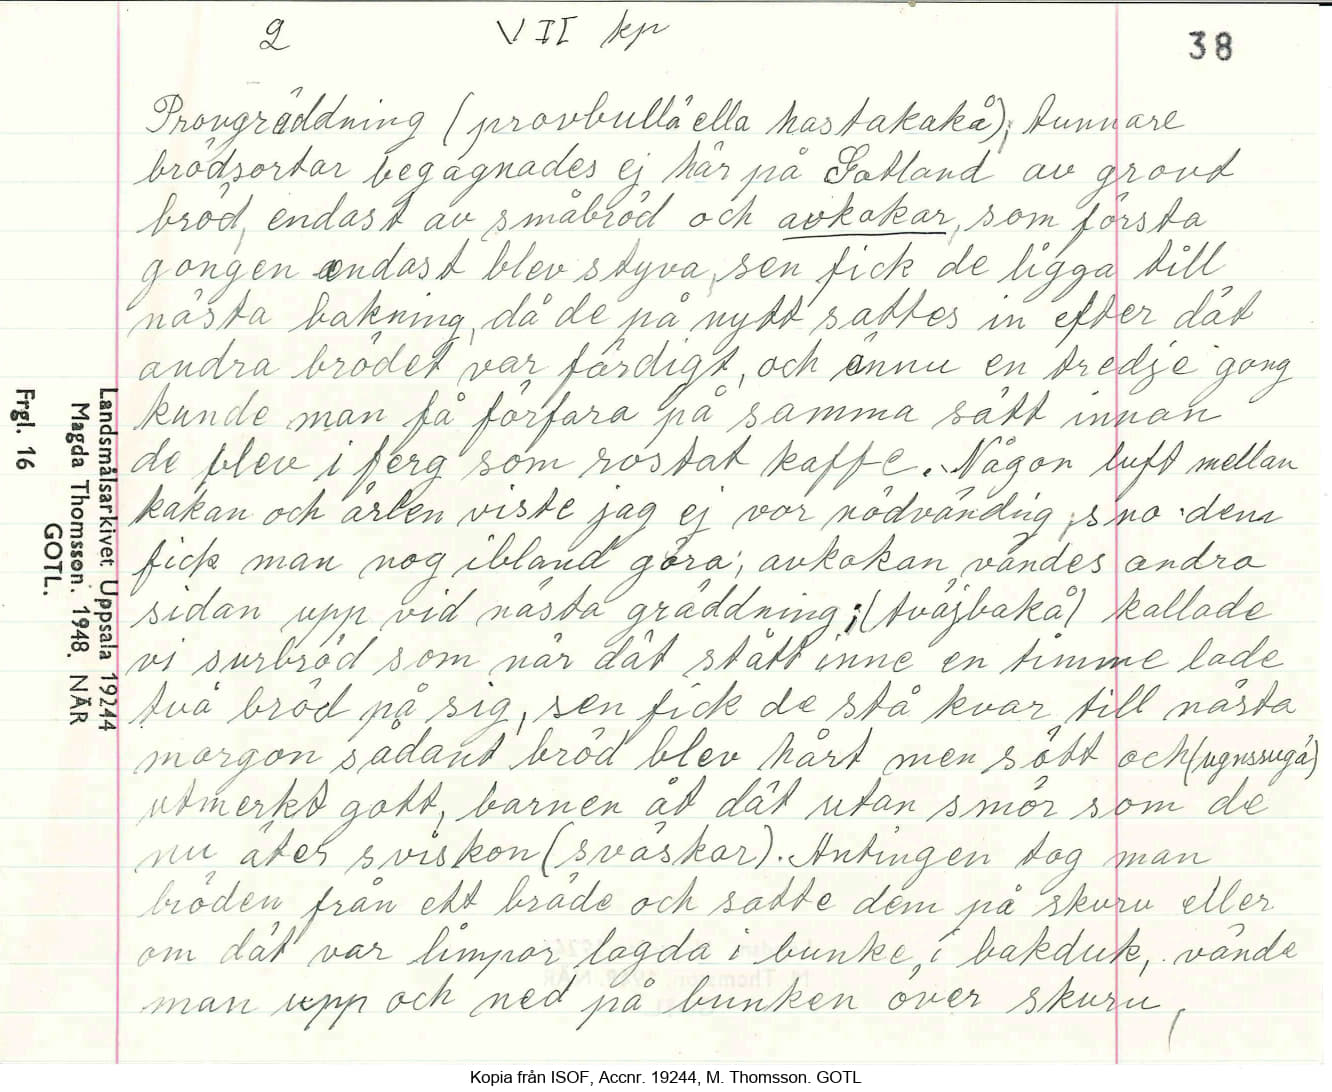 2 VII kp 38
Provgräddning (provbullä ella hastakakå); tunnare
brödsortar begagnades ej här på Gotland av grovt
bröd, endast av småbröd och avkakar, som första
gongen endast blev styva, sen fick de ligga till
nästa bakning, då de på nytt sattes in efter dät
andra brödet var färdigt, och ännu en tredje gong
kunde man få förfara på samma sätt innan
de blev i ferg som rostat kaffe. Någon luft mellan
kakan och ärlen viste jag ej vor nödvändig, sno dem
fick man nog ibland göra; avkakan vändes andra
sidan upp vid nästa gräddning; (tväjbakå) kallade
vi surbröd som när dät stått inne en timme lade
två bröd på sig, sen fick de stå kvar till nästa
morgon sådant bröd blev hårt men sött och (ugnssugä)
utmerkt gott, barnen åt dät utan smör som de
nu äter sviskon (sväskar). Antingen tog man
bröden från ett bräde och satte dem på skuru eller
om dät var limpor lagda i bunke, i bakduk, vände
man upp och ned på bunken över skuru,
Landsmålsarkivet Uppsala 19244
Magda Thomsson. 1948. NÄR
GOTL.
Frgl. 16
Kopia från ISOF, Accnr. 19244, M. Thomsson. GOTL